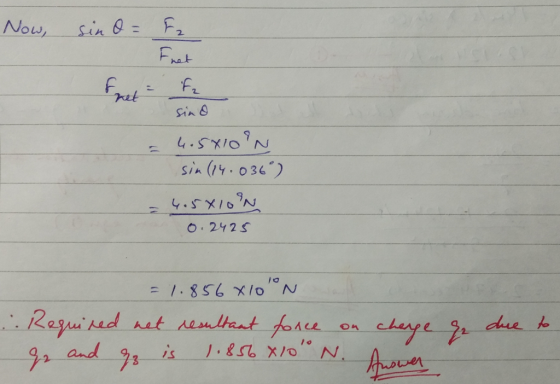 Now, sin θ = F₂ / Fnet
Fnet = F₂ / sin θ
= 4.5×10⁹ N / sin(14.036°)
= 4.5×10⁹ N / 0.2425
= 1.856 ×10¹⁰ N
∴ Required net resultant force on charge q₂ due to
q₂ and q₃ is 1.856 ×10¹⁰ N. Answer